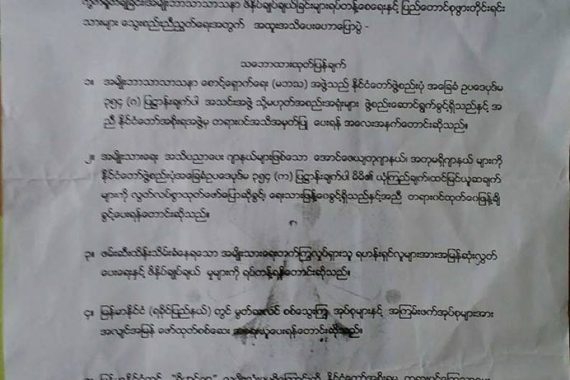 သားများ သွေးစည်းညီညွတ်ရေးအတွက် အထူးအသိပေးဟောပြောပွဲ -
သဘောထားထုတ်ပြန်ချက်
၁။ အမျိုးဘာသာသာသနာ စောင့်ရှောက်ရေး (မဘသ) အဖွဲ့သည် နိုင်ငံတော်ဖွဲ့စည်းပုံ အခြေခံ ဥပဒေပုဒ်မ
၃၅၄ (ဂ) ပြဋ္ဌာန်းချက်ပါ အသင်းအဖွဲ့ သို့မဟုတ်အစည်းအရုံးများ ဖွဲ့စည်းဆောင်ရွက်ခွင့်ရှိသည်နှင့် အ
ညီ နိုင်ငံတော်အစိုးရအဖွဲ့မှ တရားဝင်အသိအမှတ်ပြု ပေးရန် အလေးအနက်တောင်းဆိုသည်။
၂။ အမျိုးသားရေး အသိပညာပေး ဂျာနယ်များဖြစ်သော အောင်ဇေယျတုဂျာနယ်၊ အတုမရှိဂျာနယ် များကို
နိုင်ငံတော်ဖွဲ့စည်းပုံအခြေခံဥပဒေပုဒ်မ ၃၅၄ (က) ပြဋ္ဌာန်းချက်ပါ မိမိ၏ ယုံကြည်ချက်ထင်မြင်ယူဆချက်
များကို လွတ်လပ်စွာထုတ်ဖော်ပြောဆိုခွင့်၊ ရေးသားဖြန့်ဝေခွင့်ရှိသည်နှင့်အညီ တရားဝင်ထုတ်ဝေဖြန့်ချိ
ခွင့်ပေးရန်တောင်းဆိုသည်။
၃။ ဖမ်းဆီးထိန်းသိမ်းခံနေရသော အမျိုးသားရေးတက်ကြွလှုပ်ရှားသူ ရဟန်းရှင်လူများအားအမြန်ဆုံးလွှတ်
ပေးရန်နှင့် ဖိနှိပ်ချုပ်ချယ် မှုများကို ရပ်တန့်ရန်တောင်းဆိုသည်။
၄။ မြန်မာနိုင်ငံ (ရခိုင်ပြည်နယ်) တွင် မွတ်ဆလင် စစ်သွေးကြွ အုပ်စုများနှင့် အကြမ်းဖက်အုပ်စုများအား
အလျင်အမြန် ဖော်ထုတ်စစ်ဆေး အရေးယူပေးရန်တောင်းဆိုသည်။